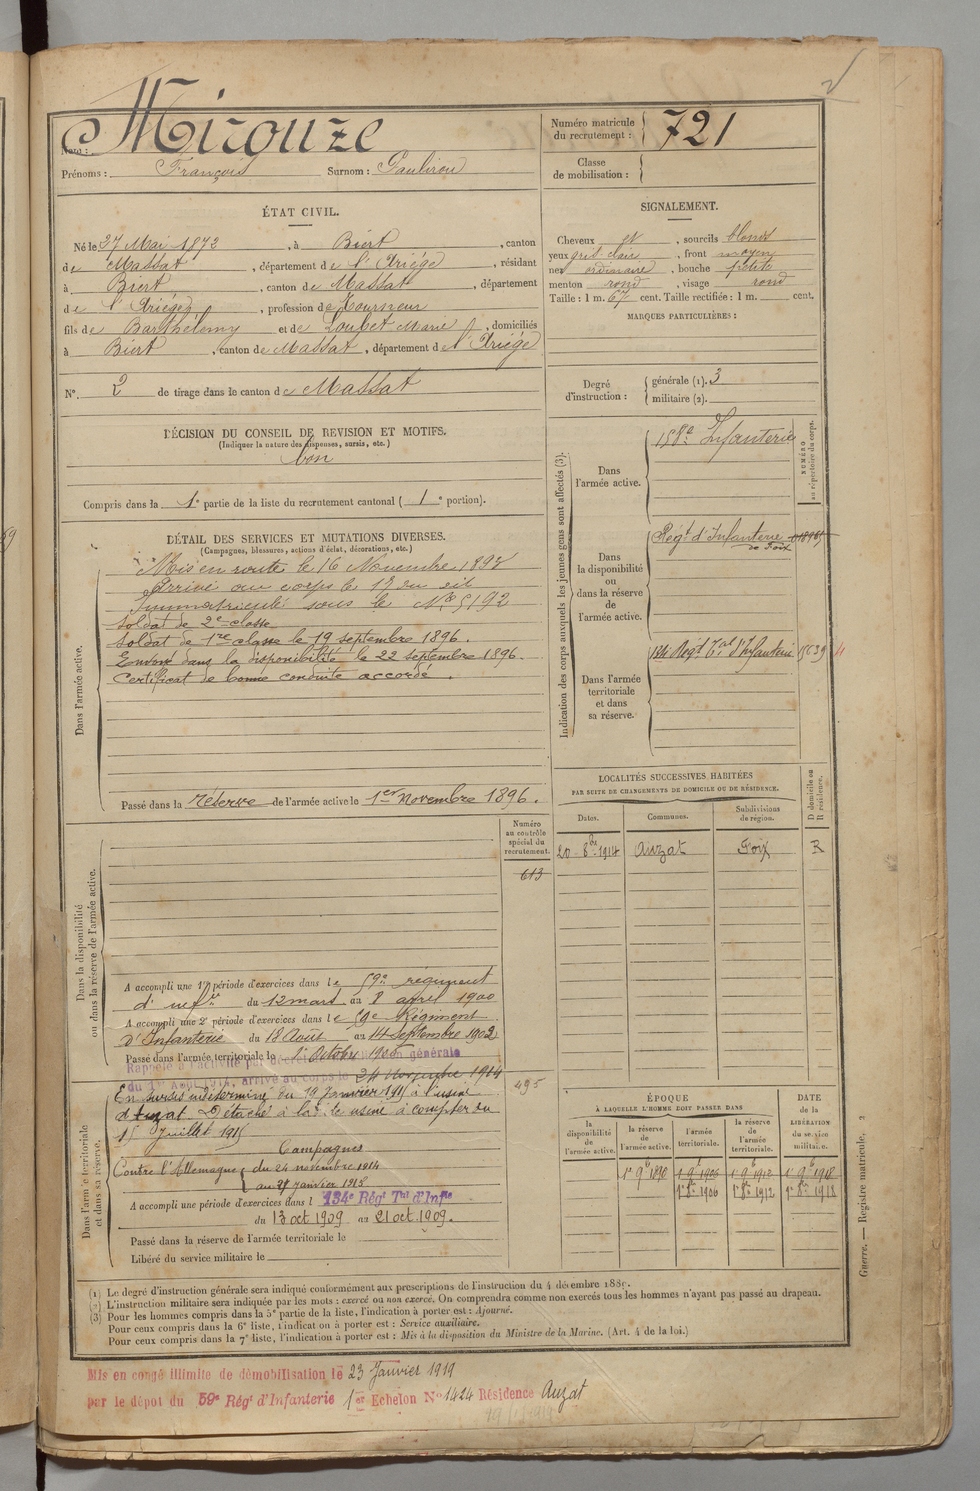 Mirouze
Nom :
Prénoms : François Surnom :
Numéro matricule du recrutement : 721
Classe de mobilisation :
ÉTAT CIVIL.
Né le 27 Mai 1872, à Biert, canton
de Massat, département de l'Ariége, résidant
à Biert, canton de Massat, département
de l'Ariége, profession de Tourneur
fils de Barthélemy et de Loubet Marie, domiciliés
à Biert, canton de Massat, département de l'Ariége
N° 2 de tirage dans le canton de Massat
SIGNALEMENT.
Cheveux et, sourcils blonds
yeux gris clair, front moyen
nez ordinaire, bouche petite
menton rond, visage rond
Taille : 1 m. 67 cent. Taille rectifiée : 1 m. cent.
MARQUES PARTICULIÈRES :
Degré d'instruction : générale (1). 3
militaire (2).
DÉCISION DU CONSEIL DE REVISION ET MOTIFS.
(Indiquer la nature des dispenses, sursis, etc.)
bon
Compris dans la 1e partie de la liste du recrutement cantonal ( 1e portion).
DÉTAIL DES SERVICES ET MUTATIONS DIVERSES.
(Campagnes, blessures, actions d'éclat, décorations, etc.)
Dans l'armée active.
Mis en route le 16 Novembre 1893
Arrivé au corps le 17 du dit
Immatriculé sous le N° 5192
Soldat de 2e classe
Soldat de 1re classe le 19 septembre 1896.
Envoyé dans la disponibilité le 22 septembre 1896.
Certificat de bonne conduite accordé.
Passé dans la réserve de l'armée active le 1er Novembre 1896.
Indication des corps auxquels les jeunes gens sont affectés (3).
NUMÉRO au répertoire du corps.
Dans l'armée active.
158e Infanterie
Dans la disponibilité ou dans la réserve de l'armée active.
Régt d'Infanterie
de Foix
Dans l'armée territoriale et dans sa réserve.
134 Régt Tal d'Infanterie
LOCALITÉS SUCCESSIVES HABITÉES
PAR SUITE DE CHANGEMENTS DE DOMICILE OU DE RÉSIDENCE.
D domicile ou R résidence.
Dates. Communes. Subdivisions de région.
20-8bre-1914 Auzat Foix R
Numéro au contrôle spécial du recrutement.
613
Dans la disponibilité ou dans la réserve de l'armée active.
A accompli une 1re période d'exercices dans le 59e régiment
d'inf.rie du 12 mars au 8 avril 1900
A accompli une 2e période d'exercices dans le 59e Régiment
d'Infanterie du 18 Août au 14 Septembre 1902
Passé dans l'armée territoriale le 1er Octobre 1906
Rappelé à l'activité par décret de mobilisation générale
du 1er Août 1914, arrivé au corps le 24 Novembre 1914
495
Dans l'armée territoriale et dans sa réserve.
En sursis indéterminé du 19 Janvier 1915 à l'usine
d'Auzat. Détaché à la dite usine à compter du
15 Juillet 1915
Campagnes
Contre l'Allemagne du 24 novembre 1914
au 27 janvier 1915
A accompli une période d'exercices dans l 134e Régt Tal d'Infie
du 13 oct 1909 au 21 oct. 1909.
Passé dans la réserve de l'armée territoriale le
Libéré du service militaire le
ÉPOQUE
À LAQUELLE L'HOMME DOIT PASSER DANS
DATE de la LIBÉRATION du service militaire.
la disponibilité de l'armée active. la réserve de l'armée active. l'armée territoriale. la réserve de l'armée territoriale.
1r 8re 1906 1r 8re 1912 1r 8re 1918
Guerre. — Registre matricule. 2
(1) Le degré d'instruction générale sera indiqué conformément aux prescriptions de l'instruction du 4 décembre 1889.
(2) L'instruction militaire sera indiquée par les mots : exercé ou non exercé. On comprendra comme non exercés tous les hommes n'ayant pas passé au drapeau.
(3) Pour les hommes compris dans la 5e partie de la liste, l'indication à porter est : Ajourné.
Pour ceux compris dans la 6e liste, l'indication à porter est : Service auxiliaire.
Pour ceux compris dans la 7e liste, l'indication à porter est : Mis à la disposition du Ministre de la Marine. (Art. 4 de la loi.)
Mis en congé illimité de démobilisation le 23 Janvier 1919
par le dépôt du 59e Régt d'Infanterie 1er Echelon N° 1424 Résidence Auzat